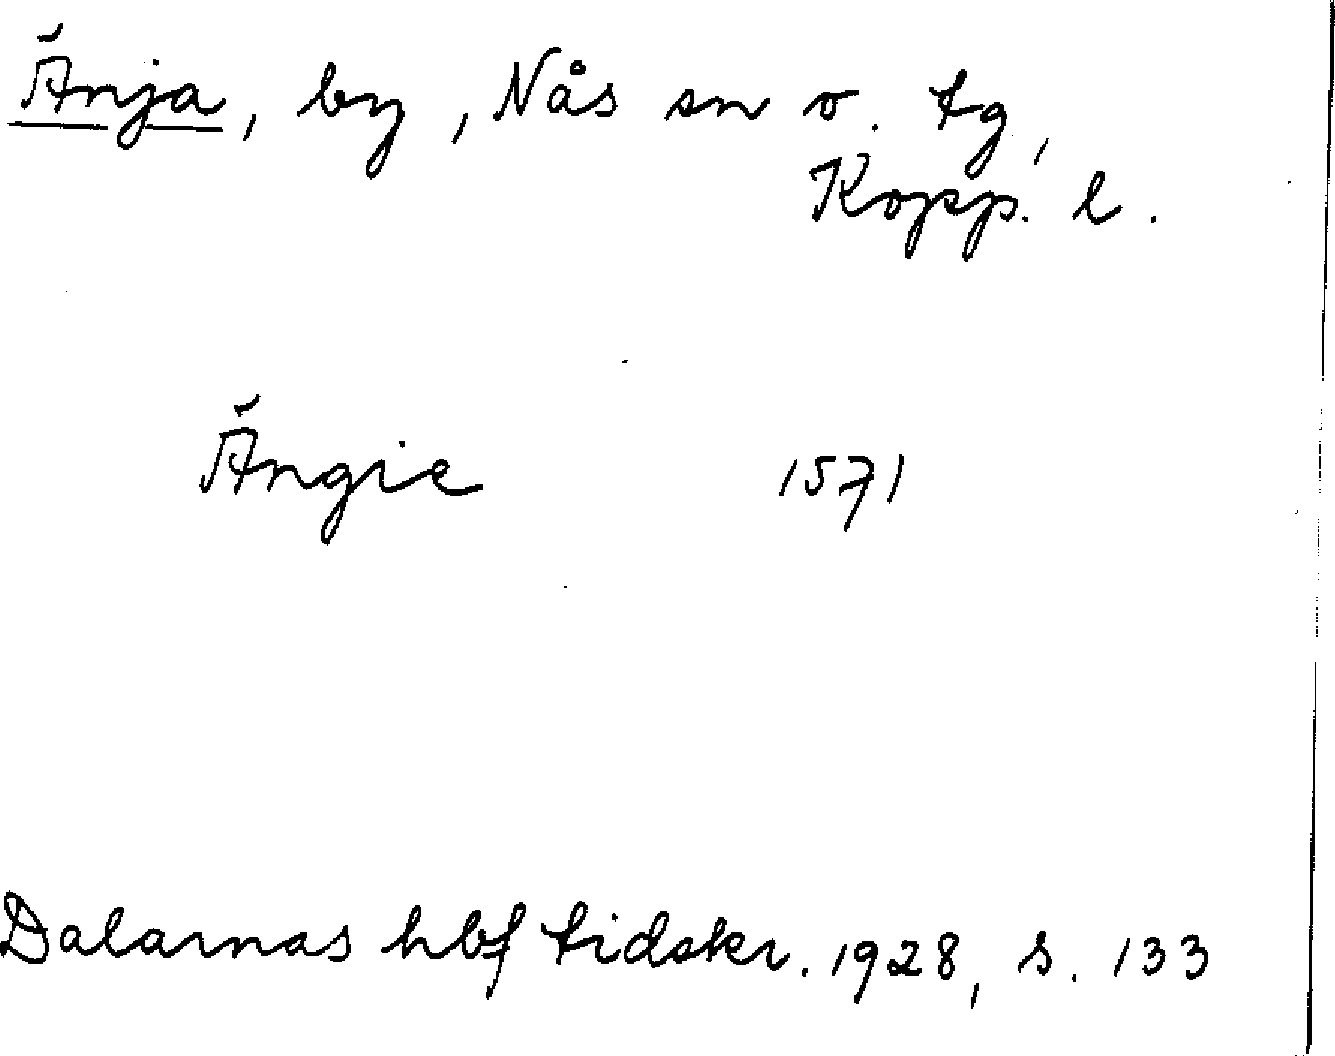 Änja, by, Nås sn o. tg,
Kopp. l.
Ängie 1571
Dalarnas hbf tidskr. 1928, s. 133